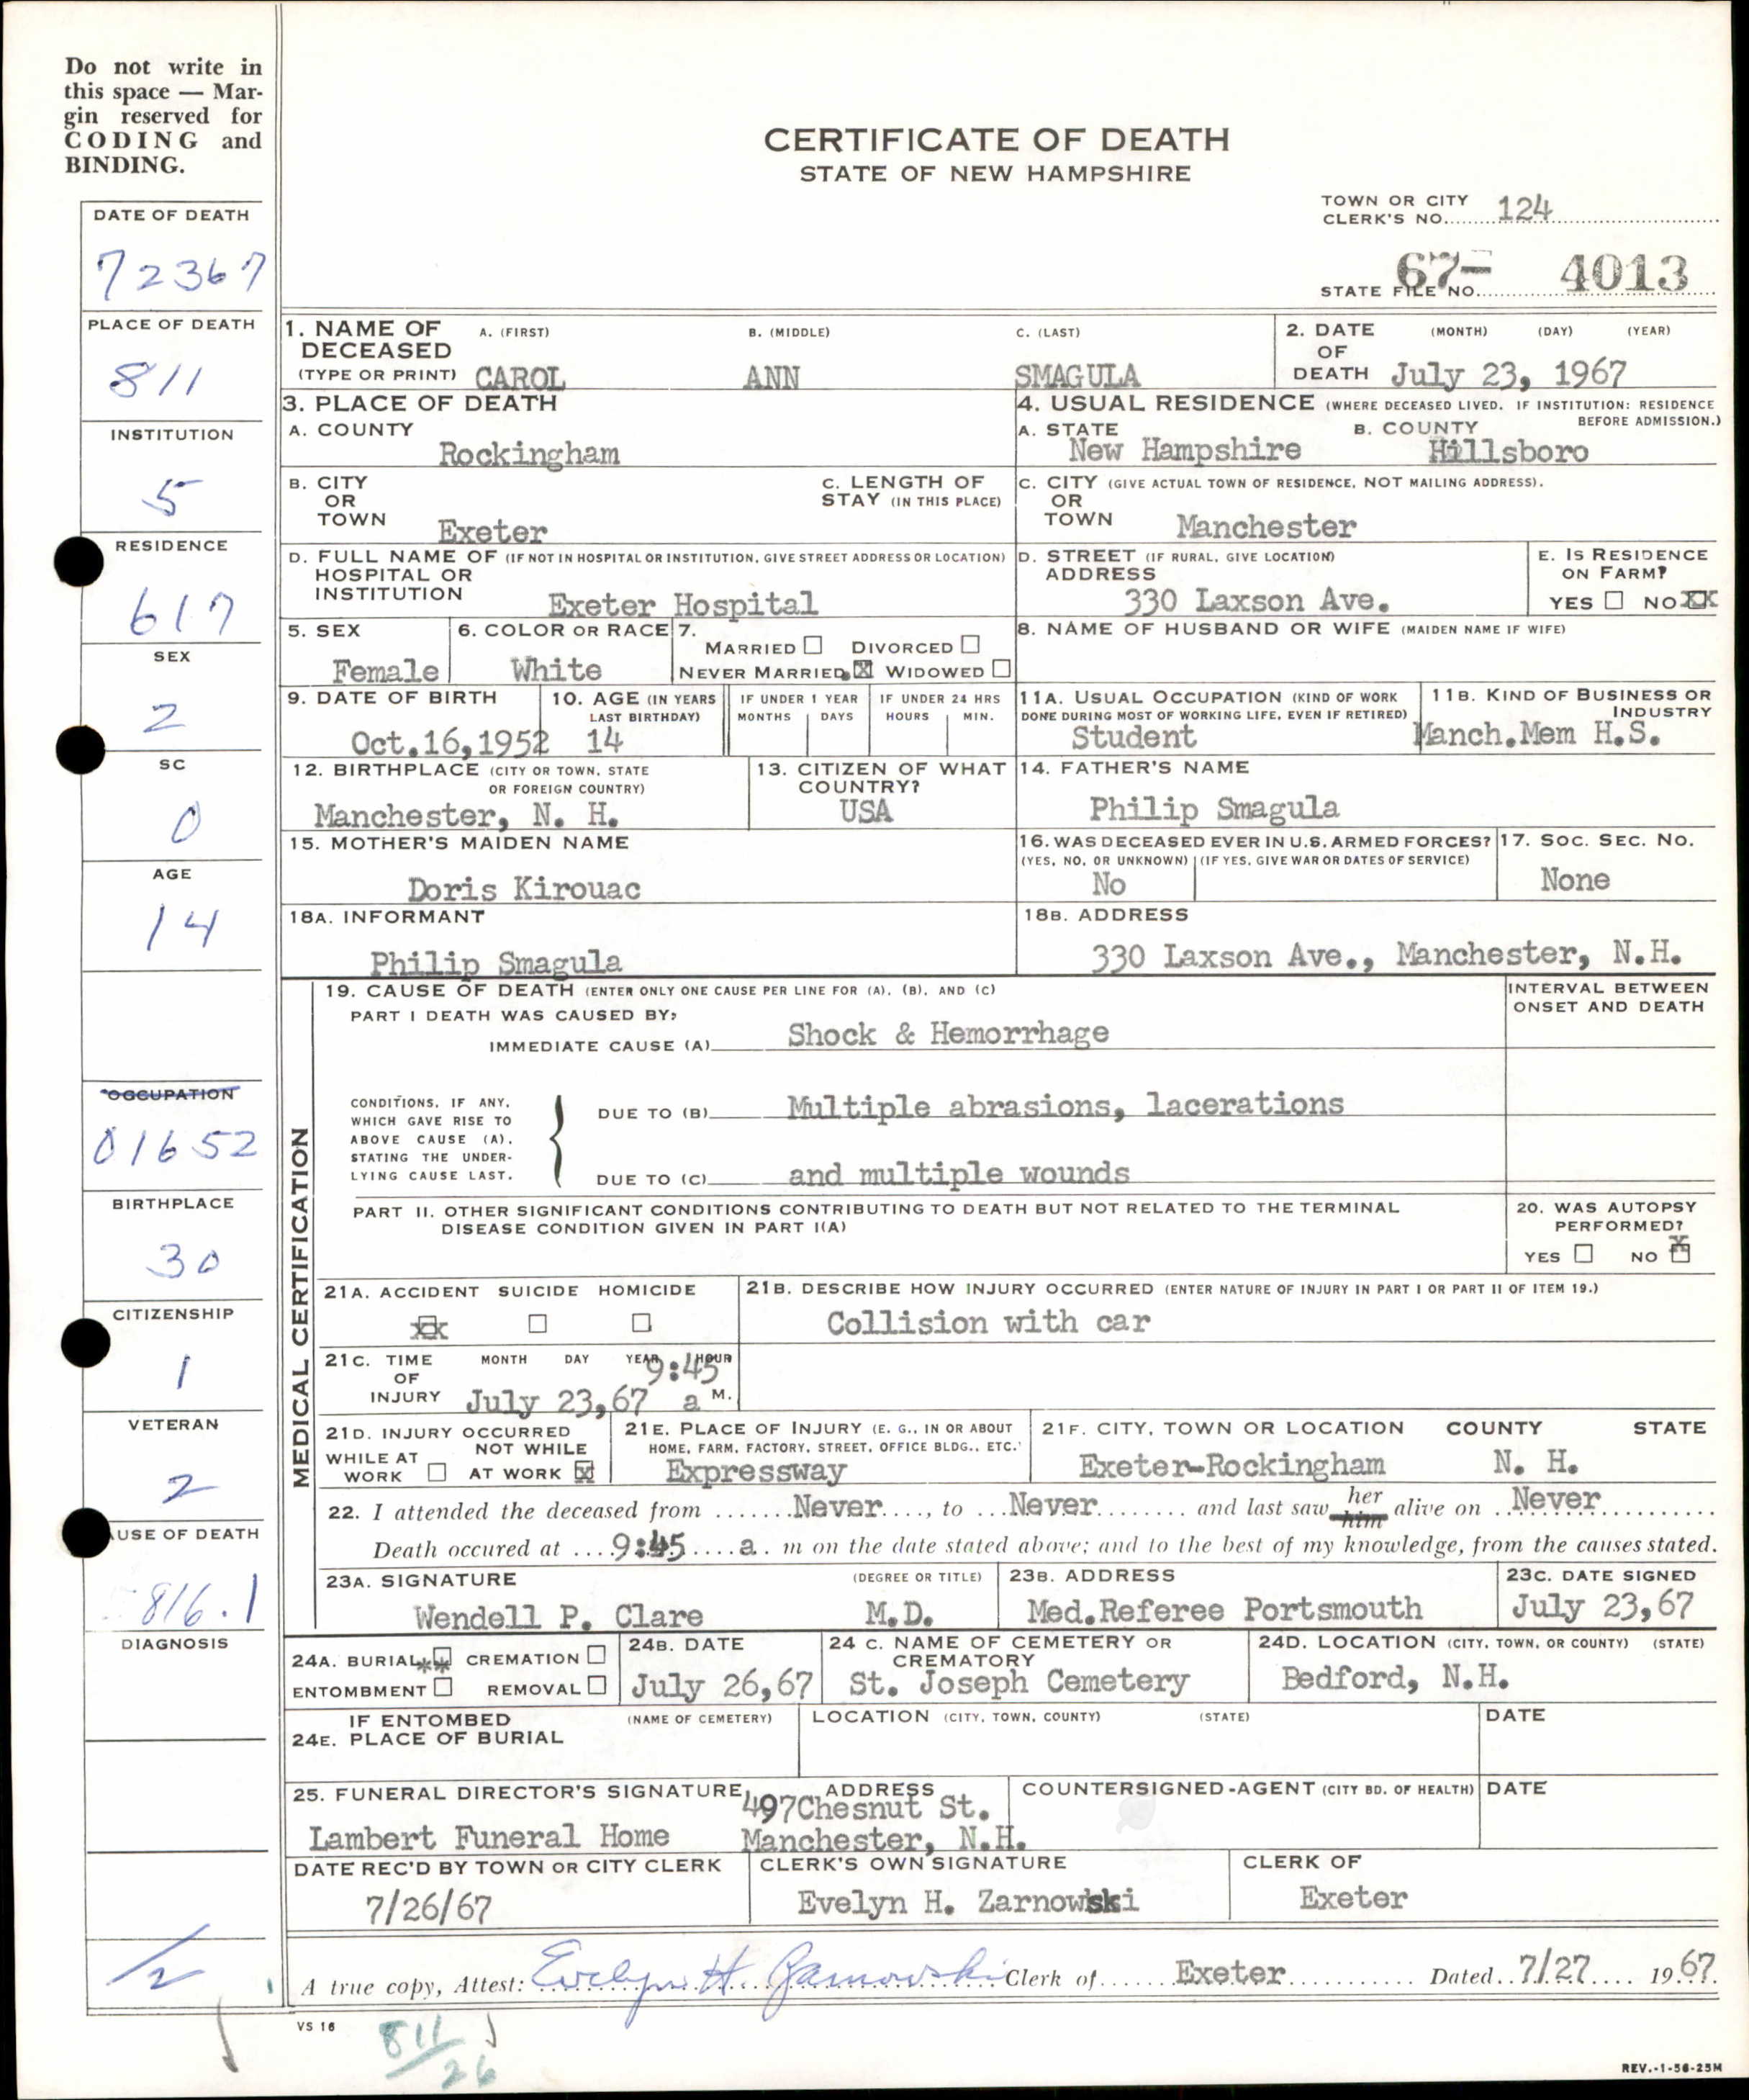 Do not write in
this space — Mar-
gin reserved for
CODING and
BINDING.
CERTIFICATE OF DEATH
STATE OF NEW HAMPSHIRE
TOWN OR CITY
CLERK'S NO. 124
STATE FILE NO. 67- 4013
DATE OF DEATH
72367
PLACE OF DEATH
811
INSTITUTION
5
RESIDENCE
617
SEX
2
SC
0
AGE
14
OCCUPATION
01652
BIRTHPLACE
30
CITIZENSHIP
1
VETERAN
2
AUSE OF DEATH
816.1
DIAGNOSIS
1. NAME OF DECEASED (TYPE OR PRINT)
A. (FIRST) B. (MIDDLE) C. (LAST)
CAROL ANN SMAGULA
2. DATE OF DEATH (MONTH) (DAY) (YEAR)
July 23, 1967
3. PLACE OF DEATH
A. COUNTY
Rockingham
4. USUAL RESIDENCE (WHERE DECEASED LIVED. IF INSTITUTION: RESIDENCE BEFORE ADMISSION.)
A. STATE B. COUNTY
New Hampshire Hillsboro
B. CITY OR TOWN
Exeter
C. LENGTH OF STAY (IN THIS PLACE)
C. CITY (GIVE ACTUAL TOWN OF RESIDENCE, NOT MAILING ADDRESS).
OR TOWN
Manchester
D. FULL NAME OF (IF NOT IN HOSPITAL OR INSTITUTION, GIVE STREET ADDRESS OR LOCATION)
HOSPITAL OR INSTITUTION
Exeter Hospital
D. STREET (IF RURAL, GIVE LOCATION)
ADDRESS
330 Laxson Ave.
E. IS RESIDENCE ON FARM?
YES NO XX
5. SEX
Female
6. COLOR OR RACE
White
7. MARRIED DIVORCED
NEVER MARRIED X WIDOWED
8. NAME OF HUSBAND OR WIFE (MAIDEN NAME IF WIFE)
9. DATE OF BIRTH
Oct.16,1952
10. AGE (IN YEARS LAST BIRTHDAY)
14
IF UNDER 1 YEAR
MONTHS DAYS
IF UNDER 24 HRS
HOURS MIN.
11A. USUAL OCCUPATION (KIND OF WORK DONE DURING MOST OF WORKING LIFE, EVEN IF RETIRED)
Student
11B. KIND OF BUSINESS OR INDUSTRY
Manch.Mem H.S.
12. BIRTHPLACE (CITY OR TOWN, STATE OR FOREIGN COUNTRY)
Manchester, N. H.
13. CITIZEN OF WHAT COUNTRY?
USA
14. FATHER'S NAME
Philip Smagula
15. MOTHER'S MAIDEN NAME
Doris Kirouac
16. WAS DECEASED EVER IN U.S. ARMED FORCES?
(YES, NO, OR UNKNOWN) (IF YES, GIVE WAR OR DATES OF SERVICE)
No
17. SOC. SEC. NO.
None
18A. INFORMANT
Philip Smagula
18B. ADDRESS
330 Laxson Ave., Manchester, N.H.
MEDICAL CERTIFICATION
19. CAUSE OF DEATH (ENTER ONLY ONE CAUSE PER LINE FOR (A), (B), AND (C)
INTERVAL BETWEEN ONSET AND DEATH
PART I DEATH WAS CAUSED BY:
IMMEDIATE CAUSE (A) Shock & Hemorrhage
CONDITIONS, IF ANY,
WHICH GAVE RISE TO
ABOVE CAUSE (A),
STATING THE UNDER-
LYING CAUSE LAST.
DUE TO (B) Multiple abrasions, lacerations
DUE TO (C) and multiple wounds
PART II. OTHER SIGNIFICANT CONDITIONS CONTRIBUTING TO DEATH BUT NOT RELATED TO THE TERMINAL
DISEASE CONDITION GIVEN IN PART I(A)
20. WAS AUTOPSY PERFORMED?
YES NO X
21A. ACCIDENT SUICIDE HOMICIDE
XX
21B. DESCRIBE HOW INJURY OCCURRED (ENTER NATURE OF INJURY IN PART I OR PART II OF ITEM 19.)
Collision with car
21C. TIME OF INJURY MONTH DAY YEAR HOUR
July 23,67 9:45 a M.
21D. INJURY OCCURRED
WHILE AT WORK NOT WHILE AT WORK X
21E. PLACE OF INJURY (E. G., IN OR ABOUT HOME, FARM, FACTORY, STREET, OFFICE BLDG., ETC.'
Expressway
21F. CITY, TOWN OR LOCATION COUNTY STATE
Exeter-Rockingham N. H.
22. I attended the deceased from Never, to Never and last saw her him alive on Never
Death occured at 9:45 a. m on the date stated above; and to the best of my knowledge, from the causes stated.
23A. SIGNATURE (DEGREE OR TITLE)
Wendell P. Clare M.D.
23B. ADDRESS
Med.Referee Portsmouth
23C. DATE SIGNED
July 23,67
24A. BURIAL ** CREMATION
ENTOMBMENT REMOVAL
24B. DATE
July 26,67
24 C. NAME OF CEMETERY OR CREMATORY
St. Joseph Cemetery
24D. LOCATION (CITY, TOWN, OR COUNTY) (STATE)
Bedford, N.H.
IF ENTOMBED (NAME OF CEMETERY)
24E. PLACE OF BURIAL
LOCATION (CITY, TOWN, COUNTY) (STATE)
DATE
25. FUNERAL DIRECTOR'S SIGNATURE, ADDRESS
Lambert Funeral Home
497Chesnut St.
Manchester, N.H.
COUNTERSIGNED-AGENT (CITY BD. OF HEALTH)
DATE
DATE REC'D BY TOWN OR CITY CLERK
7/26/67
CLERK'S OWN SIGNATURE
Evelyn H. Zarnowski
CLERK OF
Exeter
A true copy, Attest: Evelyn H. Zarnowski Clerk of Exeter Dated 7/27 1967.
VS 16
811/26
REV.-1-56-25M